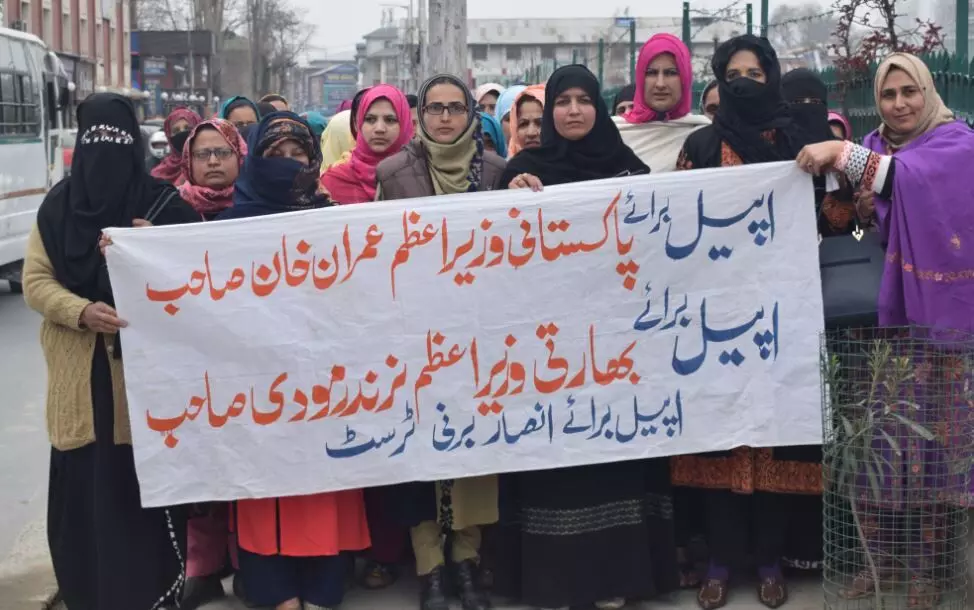 اپیل برائے
پاکستانی وزیراعظم عمران خان صاحب
اپیل برائے
بھارتی وزیراعظم نرندر مودی صاحب
اپیل برائے انصار برنی ٹرسٹ